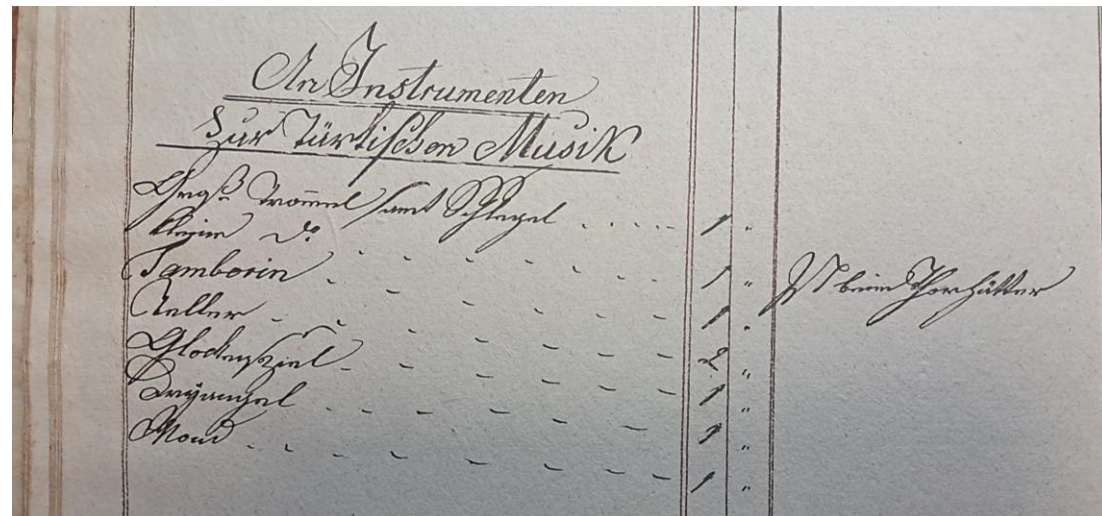 An Instrumenten
Zur Türkischen Musik
Groß Trommel samt Schlegel . . . . . 1 "
kleine do - - - - - - 1 " Ist beim Thorhütter
Tamborin - - - - - - 1 "
Teller - - - - - - 2 "
Glockenspiel - - - - - - 1 "
Dryangel - - - - - - 1 "
Mond - - - - - - 1 "